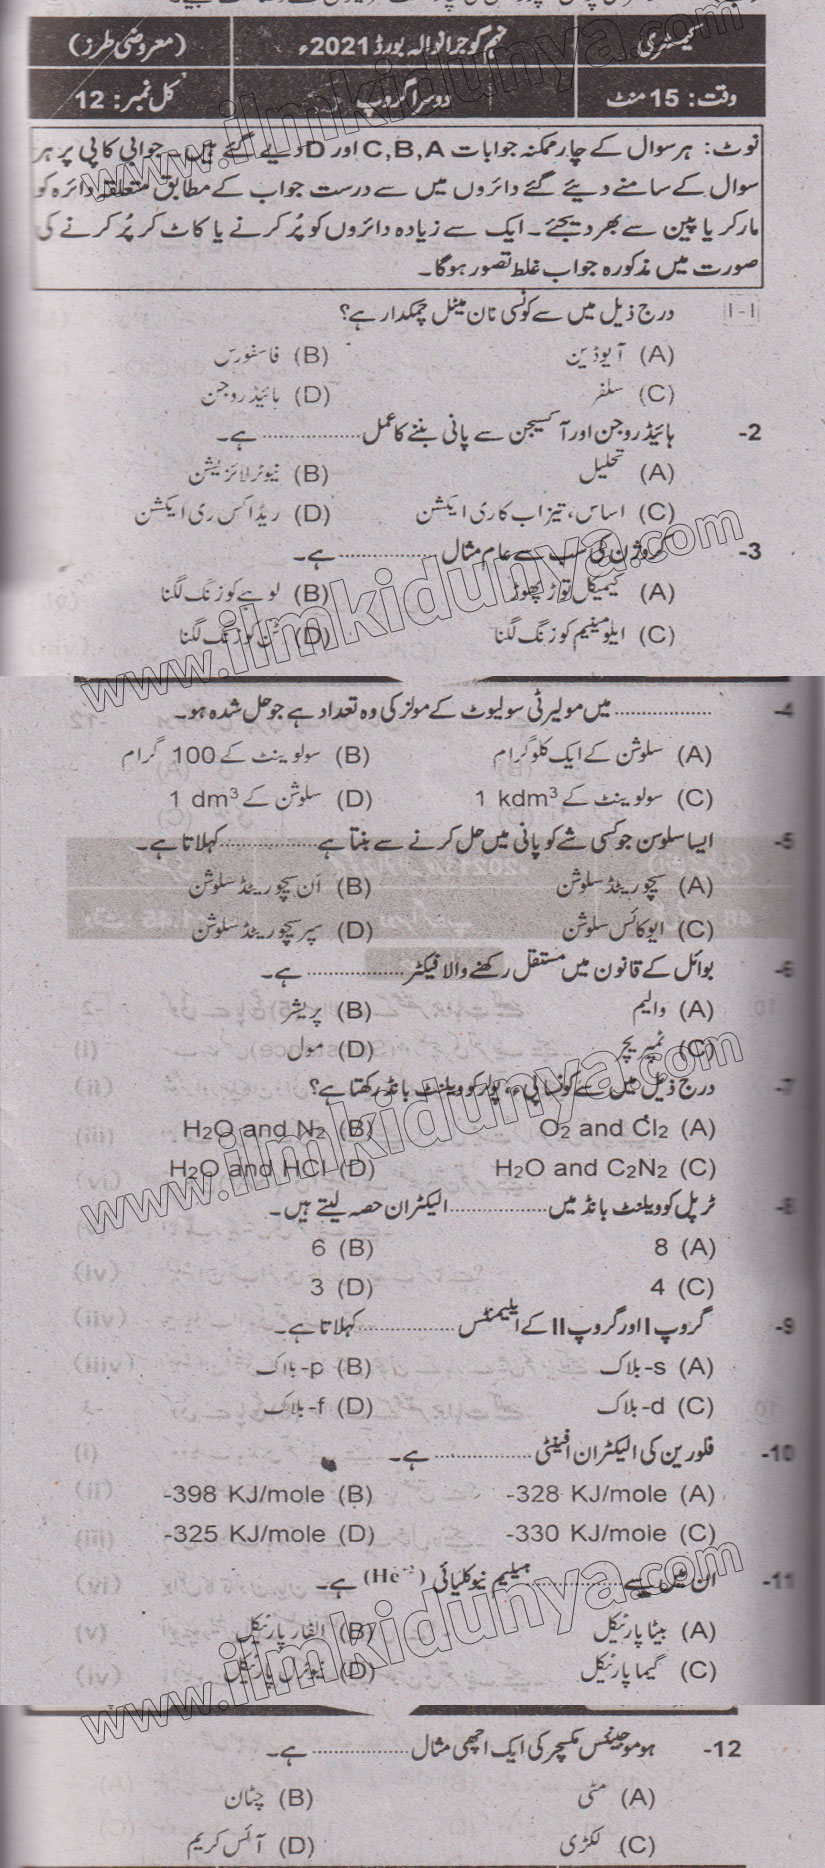 کیمسٹری نہم گوجرانوالہ بورڈ 2021ء (معروضی طرز)
وقت: 15 منٹ دوسرا گروپ کل نمبر: 12
نوٹ: ہر سوال کے چار ممکنہ جوابات C,B,A اور D دیے گئے ہیں۔ جوابی کاپی پر ہر
سوال کے سامنے دیئے گئے دائروں میں سے درست جواب کے مطابق متعلقہ دائرہ کو
مارکر یا پین سے بھر دیجئے۔ ایک سے زیادہ دائروں کو پُر کرنے یا کاٹ کر پُر کرنے کی
صورت میں مذکورہ جواب غلط تصور ہوگا۔
1-1 درج ذیل میں سے کونسی نان میٹل چمکدار ہے؟
(A) آیوڈین (B) فاسفورس
(C) سلفر (D) ہائیڈروجن
2- ہائیڈروجن اور آکسیجن سے پانی بننے کا عمل .................. ہے۔
(A) تحلیل (B) نیوٹرلائزیشن
(C) اساس، تیزاب کا ری ایکشن (D) ریڈاکس ری ایکشن
3- کروژن کی سب سے عام مثال .................. ہے۔
(A) کیمیکل توڑ پھوڑ (B) لوہے کو زنگ لگنا
(C) ایلومینیم کو زنگ لگنا (D) ٹن کو زنگ لگنا
4- .................. میں مولیرٹی سولیوٹ کے مولز کی وہ تعداد ہے جو حل شدہ ہو۔
(A) سلوشن کے ایک کلوگرام (B) سولوینٹ کے 100 گرام
(C) سولوینٹ کے 1 kdm³ (D) سلوشن کے 1 dm³
5- ایسا سلوسن جو کسی شے کو پانی میں حل کرنے سے بنتا ہے .................. کہلاتا ہے۔
(A) سچوریٹڈ سلوشن (B) اَن سچوریٹڈ سلوشن
(C) ایوکائس سلوشن (D) سپر سچوریٹڈ سلوشن
6- بوائل کے قانون میں مستقل رکھنے والا فیکٹر .................. ہے۔
(A) والیم (B) پریشر
(C) ٹمپریچر (D) مول
7- درج ذیل میں سے کونسا پیر، پولر کوویلنٹ بانڈ رکھتا ہے؟
(A) O₂ and Cl₂ (B) H₂O and N₂
(C) H₂O and C₂N₂ (D) H₂O and HCl
8- ٹرپل کوویلنٹ بانڈ میں .................. الیکٹران حصہ لیتے ہیں۔
(A) 8 (B) 6
(C) 4 (D) 3
9- گروپ I اور گروپ II کے ایلیمنٹس .................. کہلاتا ہے۔
(A) s-بلاک (B) p-بلاک
(C) d-بلاک (D) f-بلاک
10- فلورین کی الیکٹران افینٹی .................. ہے۔
(A) -328 KJ/mole (B) -398 KJ/mole
(C) -330 KJ/mole (D) -325 KJ/mole
11- ان میں سے .................. ہیلیم نیوکلیائی (He⁺²) ہے۔
(A) بیٹا پارٹیکل (B) الفار پارٹیکل
(C) گیما پارٹیکل (D) نیوٹرل پارٹیکل
12- ہوموجینس مکسچر کی ایک اچھی مثال .................. ہے۔
(A) مٹی (B) چٹان
(C) لکڑی (D) آئس کریم
www.ilmkidunya.com
www.ilmkidunya.com
www.ilmkidunya.com
www.ilmkidunya.com